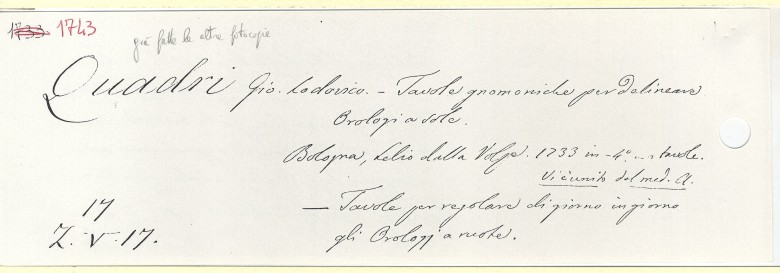 1733 1743
già fatte le altre fotocopie
Quadri Gio. Lodovico. – Tavole gnomoniche per delineare
Orologi a sole.
Bologna, Lelio dalla Volpe. 1733 in-4° ... tavole.
Vi è unito del med. A.
— Tavole per regolare di giorno in giorno
gli Orologj a ruote.
17
Z. V. 17.